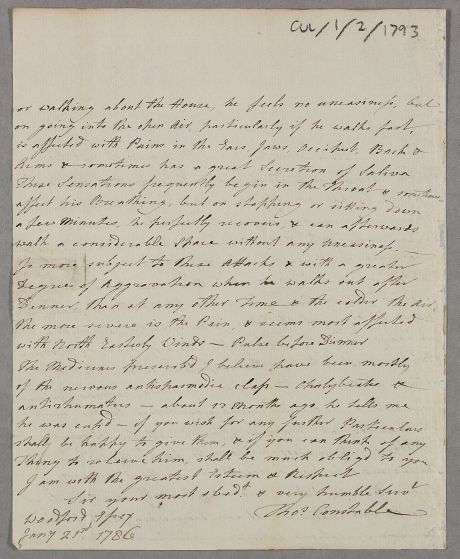 CUL/1/2/1793
or walking about the House, he feels no uneasiness, but
on going into the open Air, particularly if he walks fast,
is affected with Pains in the Ears, Jaws, Occiput, Back &
Arms & sometimes has a great Secretion of Saliva
These Sensations frequently begin in the Throat & sometimes
affect his Breathing, but on stopping or sitting down
a few Minutes, he perfectly recovers, & can afterwards
walk a considerable Space without any uneasiness. —
Is more subject to these Attacks & with a greater
Degree of Aggravation when he walks out after
Dinner, than at any other Time & the colder the Air
the more severe is the Pain, & seems most affected
with North Easterly Winds — Pulse before Dinner
The Medicines prescrib'd I believe have been mostly
of the nervous antispasmodic class — Chalybeates &
antirheumatics — about 12 Months ago he tells me
he was cup'd — if you wish for any further Particulars
shall be happy to give them, & if you can think of any
Thing to relieve him, shall be much oblig'd to you
I am with the greatest Esteem & Respect
Sir your most obedt. & very humble Servt
Thos. Constable
Woodford Essex
Jany 21st 1786